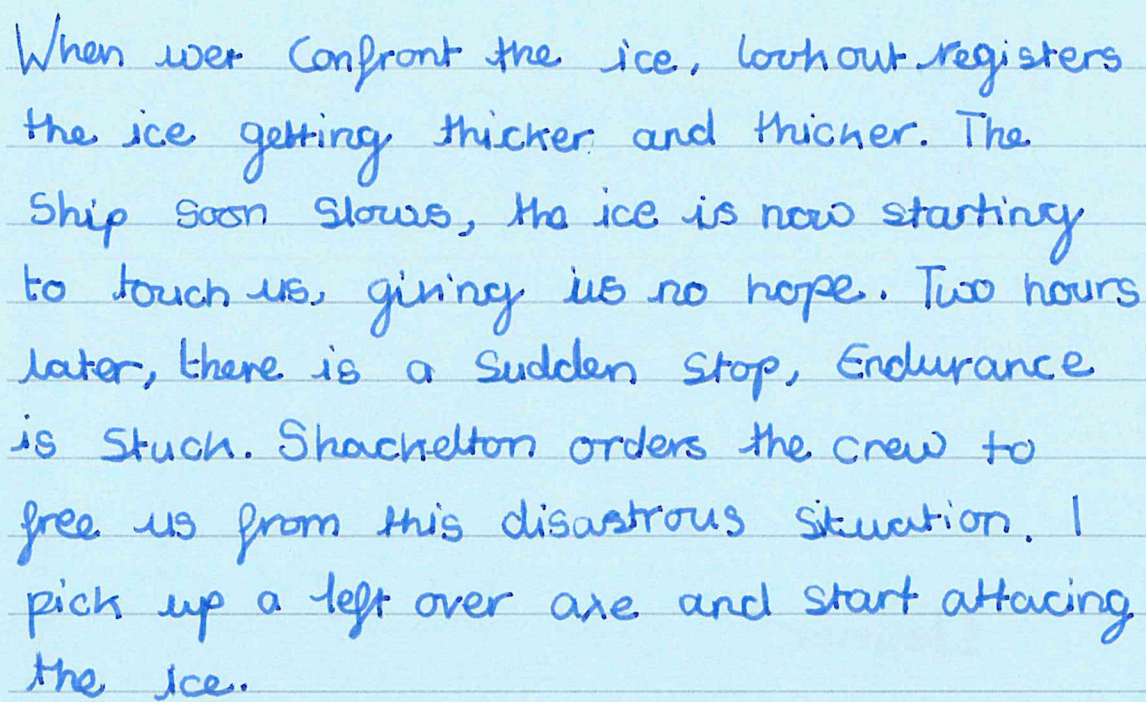 When wer Confront the ice, lookout registers
the ice getting thicker and thicker. The
Ship soon slows, the ice is now starting
to touch us, giving us no hope. Two hours
later, there is a sudden stop, Endurance
is stuck. Shackelton orders the crew to
free us from this disastrous situation. I
pick up a left over axe and start attacing
the ice.